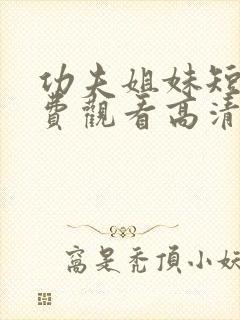 功夫姐妹短
費觀看高清
窩是禿頂小妖